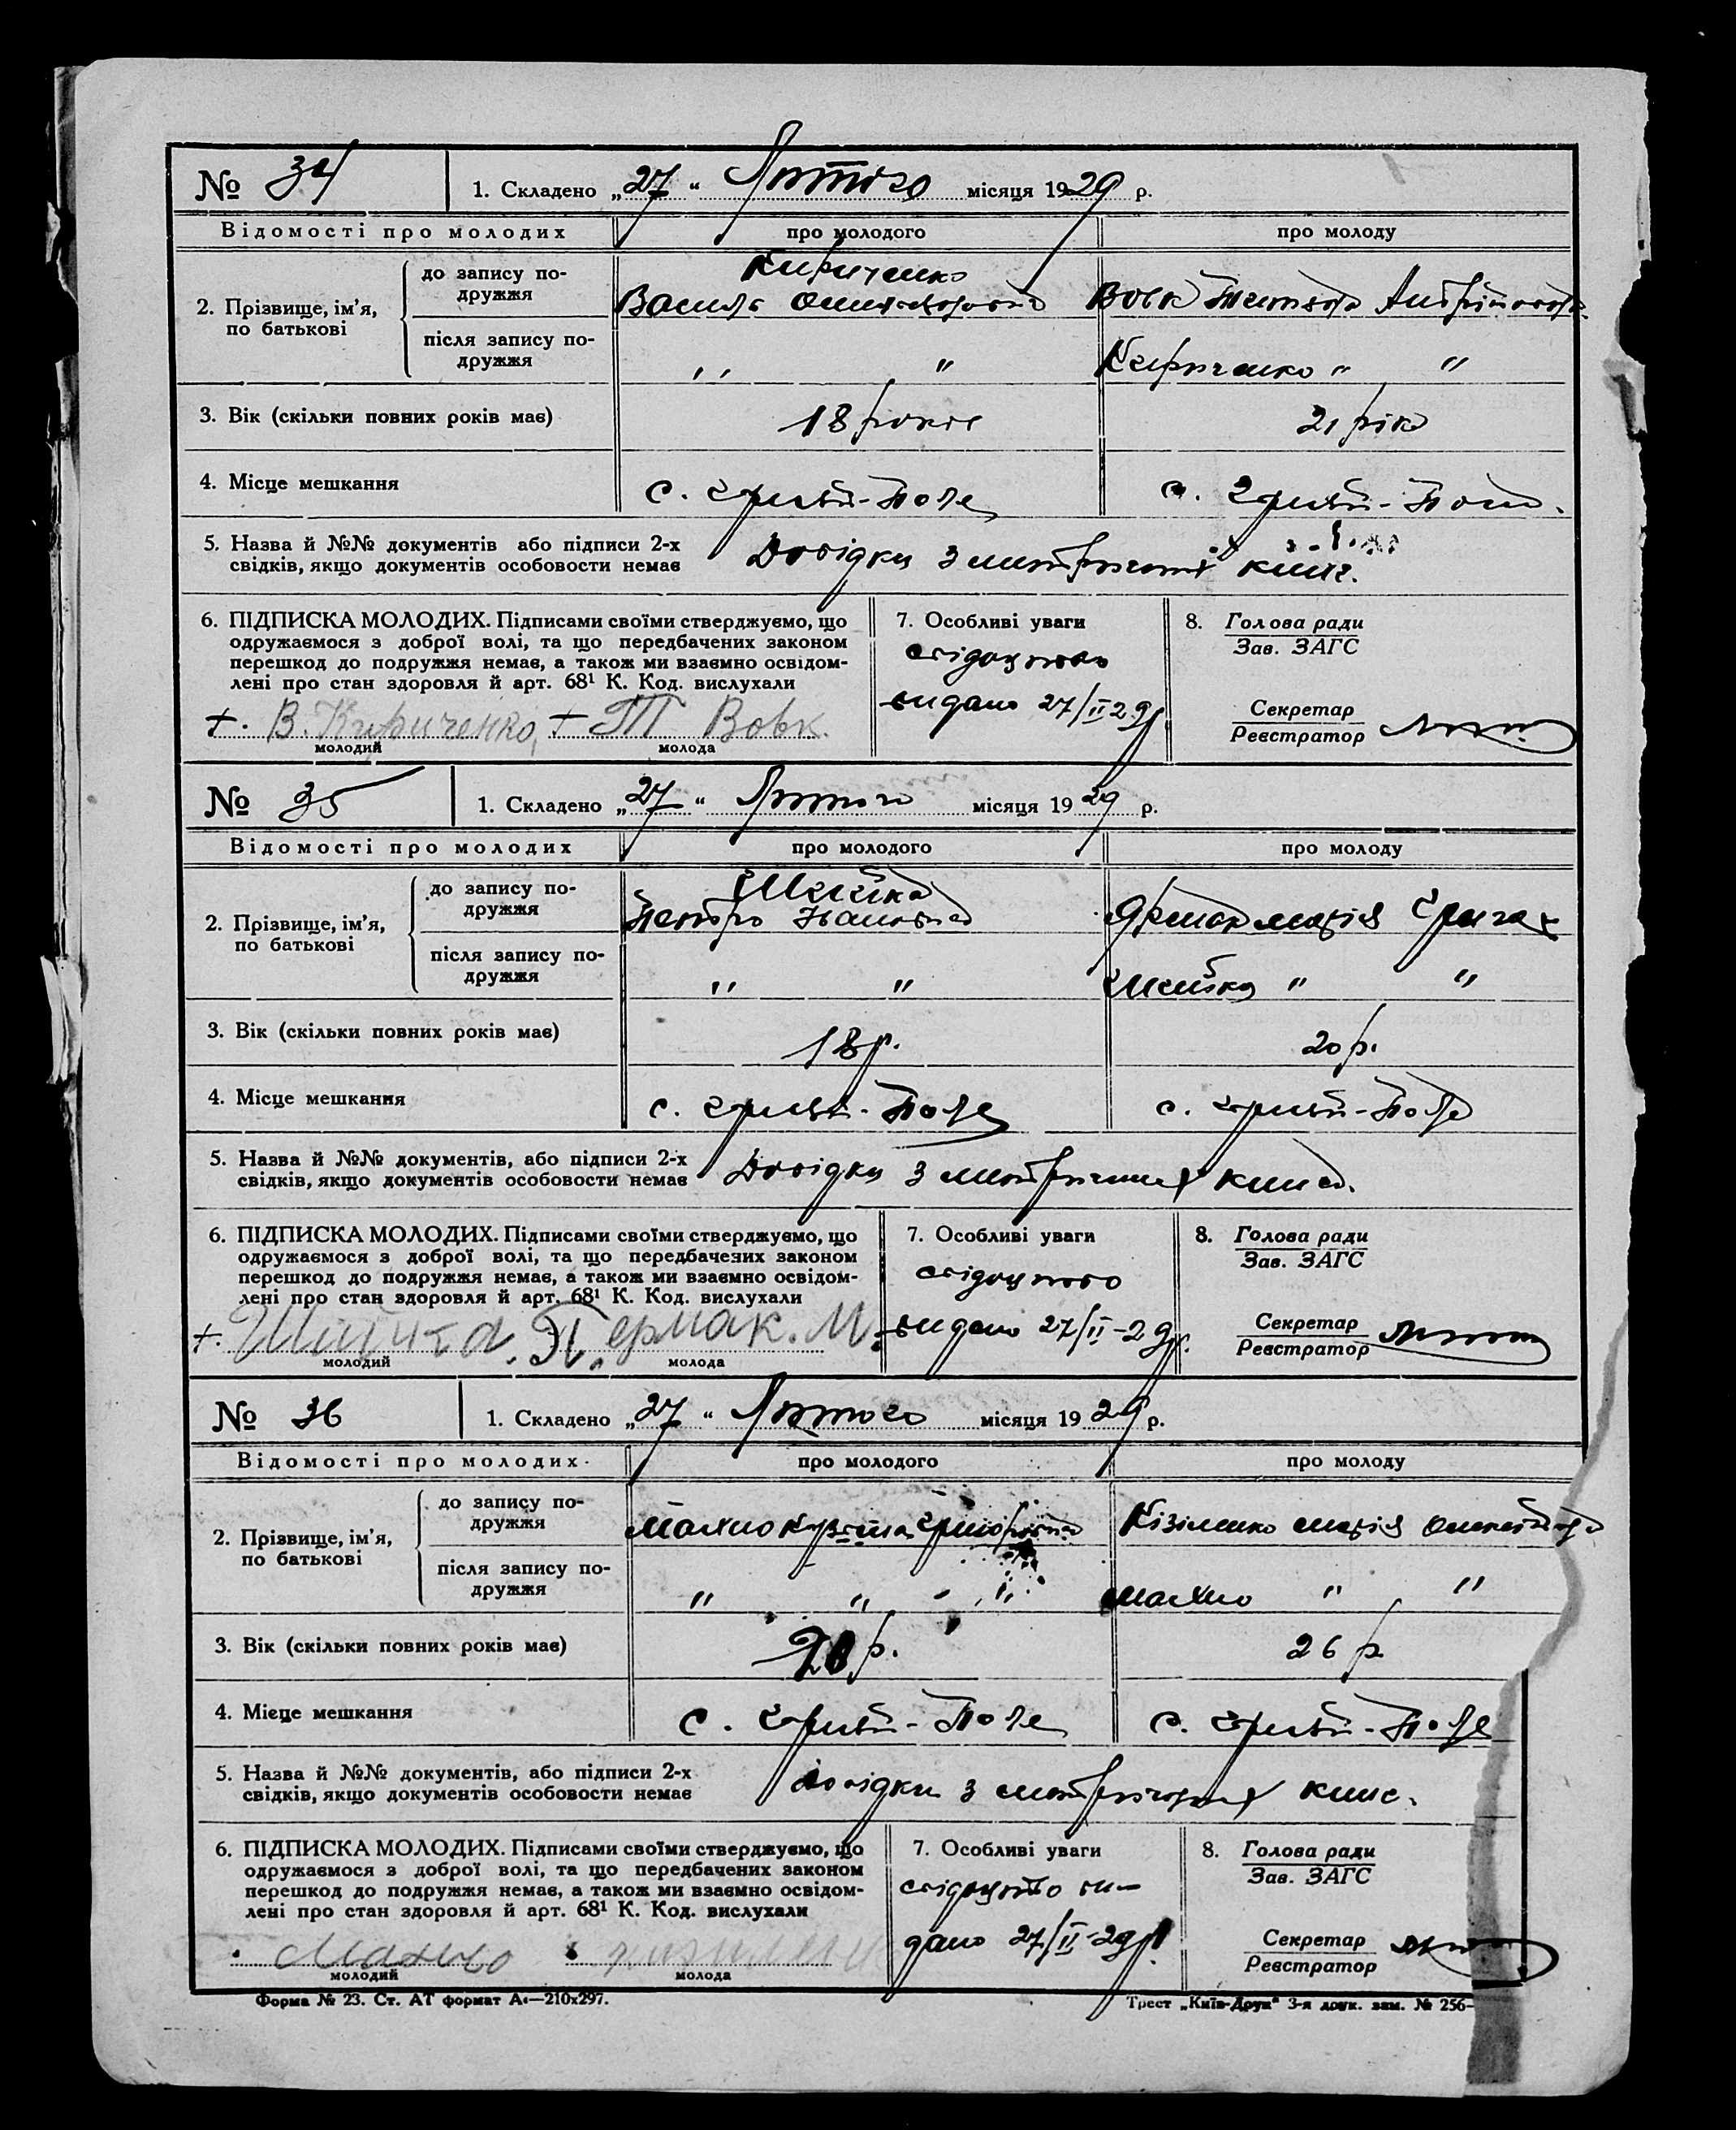 № 34 1. Складено „27“ Лютого місяця 1929 р.
Відомості про молодих про молодого про молоду
2. Прізвище, ім'я, по батькові
до запису подружжя Кириченко Василь Вовк Андріівна
після запису подружжя " " Кириченко " "
3. Вік (скільки повних років має) 18 років 21 рік
4. Місце мешкання с. Гуляй-Поле с. Гуляй-Поле.
5. Назва й №№ документів або підписи 2-х
свідків, якщо документів особовости немає Довідки з метричних книг.
6. ПІДПИСКА МОЛОДИХ. Підписами своїми стверджуємо, що
одружаємося з доброї волі, та що передбачених законом
перешкод до подружжя немає, а також ми взаємно освідом-
лені про стан здоровля й арт. 68¹ К. Код. вислухали
+. В. Кириченко, + Т Вовк.
молодий молода
7. Особливі уваги
свідоцтво
видано 27/II 29р.
8. Голова ради
Зав. ЗАГС
Секретар
Реєстратор
№ 35 1. Складено „27“ Лютого місяця 1929 р.
Відомості про молодих про молодого про молоду
2. Прізвище, ім'я, по батькові
до запису подружжя Шийка Петро Іванович Марія
після запису подружжя " " Шийка " "
3. Вік (скільки повних років має) 18р. 20р.
4. Місце мешкання с. Гуляй-Поле с. Гуляй-Поле
5. Назва й №№ документів, або підписи 2-х
свідків, якщо документів особовости немає Довідки з метричних книг.
6. ПІДПИСКА МОЛОДИХ. Підписами своїми стверджуємо, що
одружаємося з доброї волі, та що передбачених законом
перешкод до подружжя немає, а також ми взаємно освідом-
лені про стан здоровля й арт. 68¹ К. Код. вислухали
+. Шийка. П. Єрмак. М.
молодий молода
7. Особливі уваги
свідоцтво
видано 27/II-29р.
8. Голова ради
Зав. ЗАГС
Секретар
Реєстратор
№ 36 1. Складено „27“ Лютого місяця 1929 р.
Відомості про молодих про молодого про молоду
2. Прізвище, ім'я, по батькові
до запису подружжя Махно Кузьма Григорович Кізіленко Марія
після запису подружжя " " " Махно " "
3. Вік (скільки повних років має) р. 26 р.
4. Місце мешкання с. Гуляй-Поле с. Гуляй-Поле
5. Назва й №№ документів, або підписи 2-х
свідків, якщо документів особовости немає Довідки з метричних книг.
6. ПІДПИСКА МОЛОДИХ. Підписами своїми стверджуємо, що
одружаємося з доброї волі, та що передбачених законом
перешкод до подружжя немає, а також ми взаємно освідом-
лені про стан здоровля й арт. 68¹ К. Код. вислухали
Махно
молодий молода
7. Особливі уваги
свідоцтво ви-
дано 27/II-29р.
8. Голова ради
Зав. ЗАГС
Секретар
Реєстратор
Форма № 23. Ст. АТ формат А4—210х297. Трест „Київ-Друк“ 3-я друк. зам. № 256-